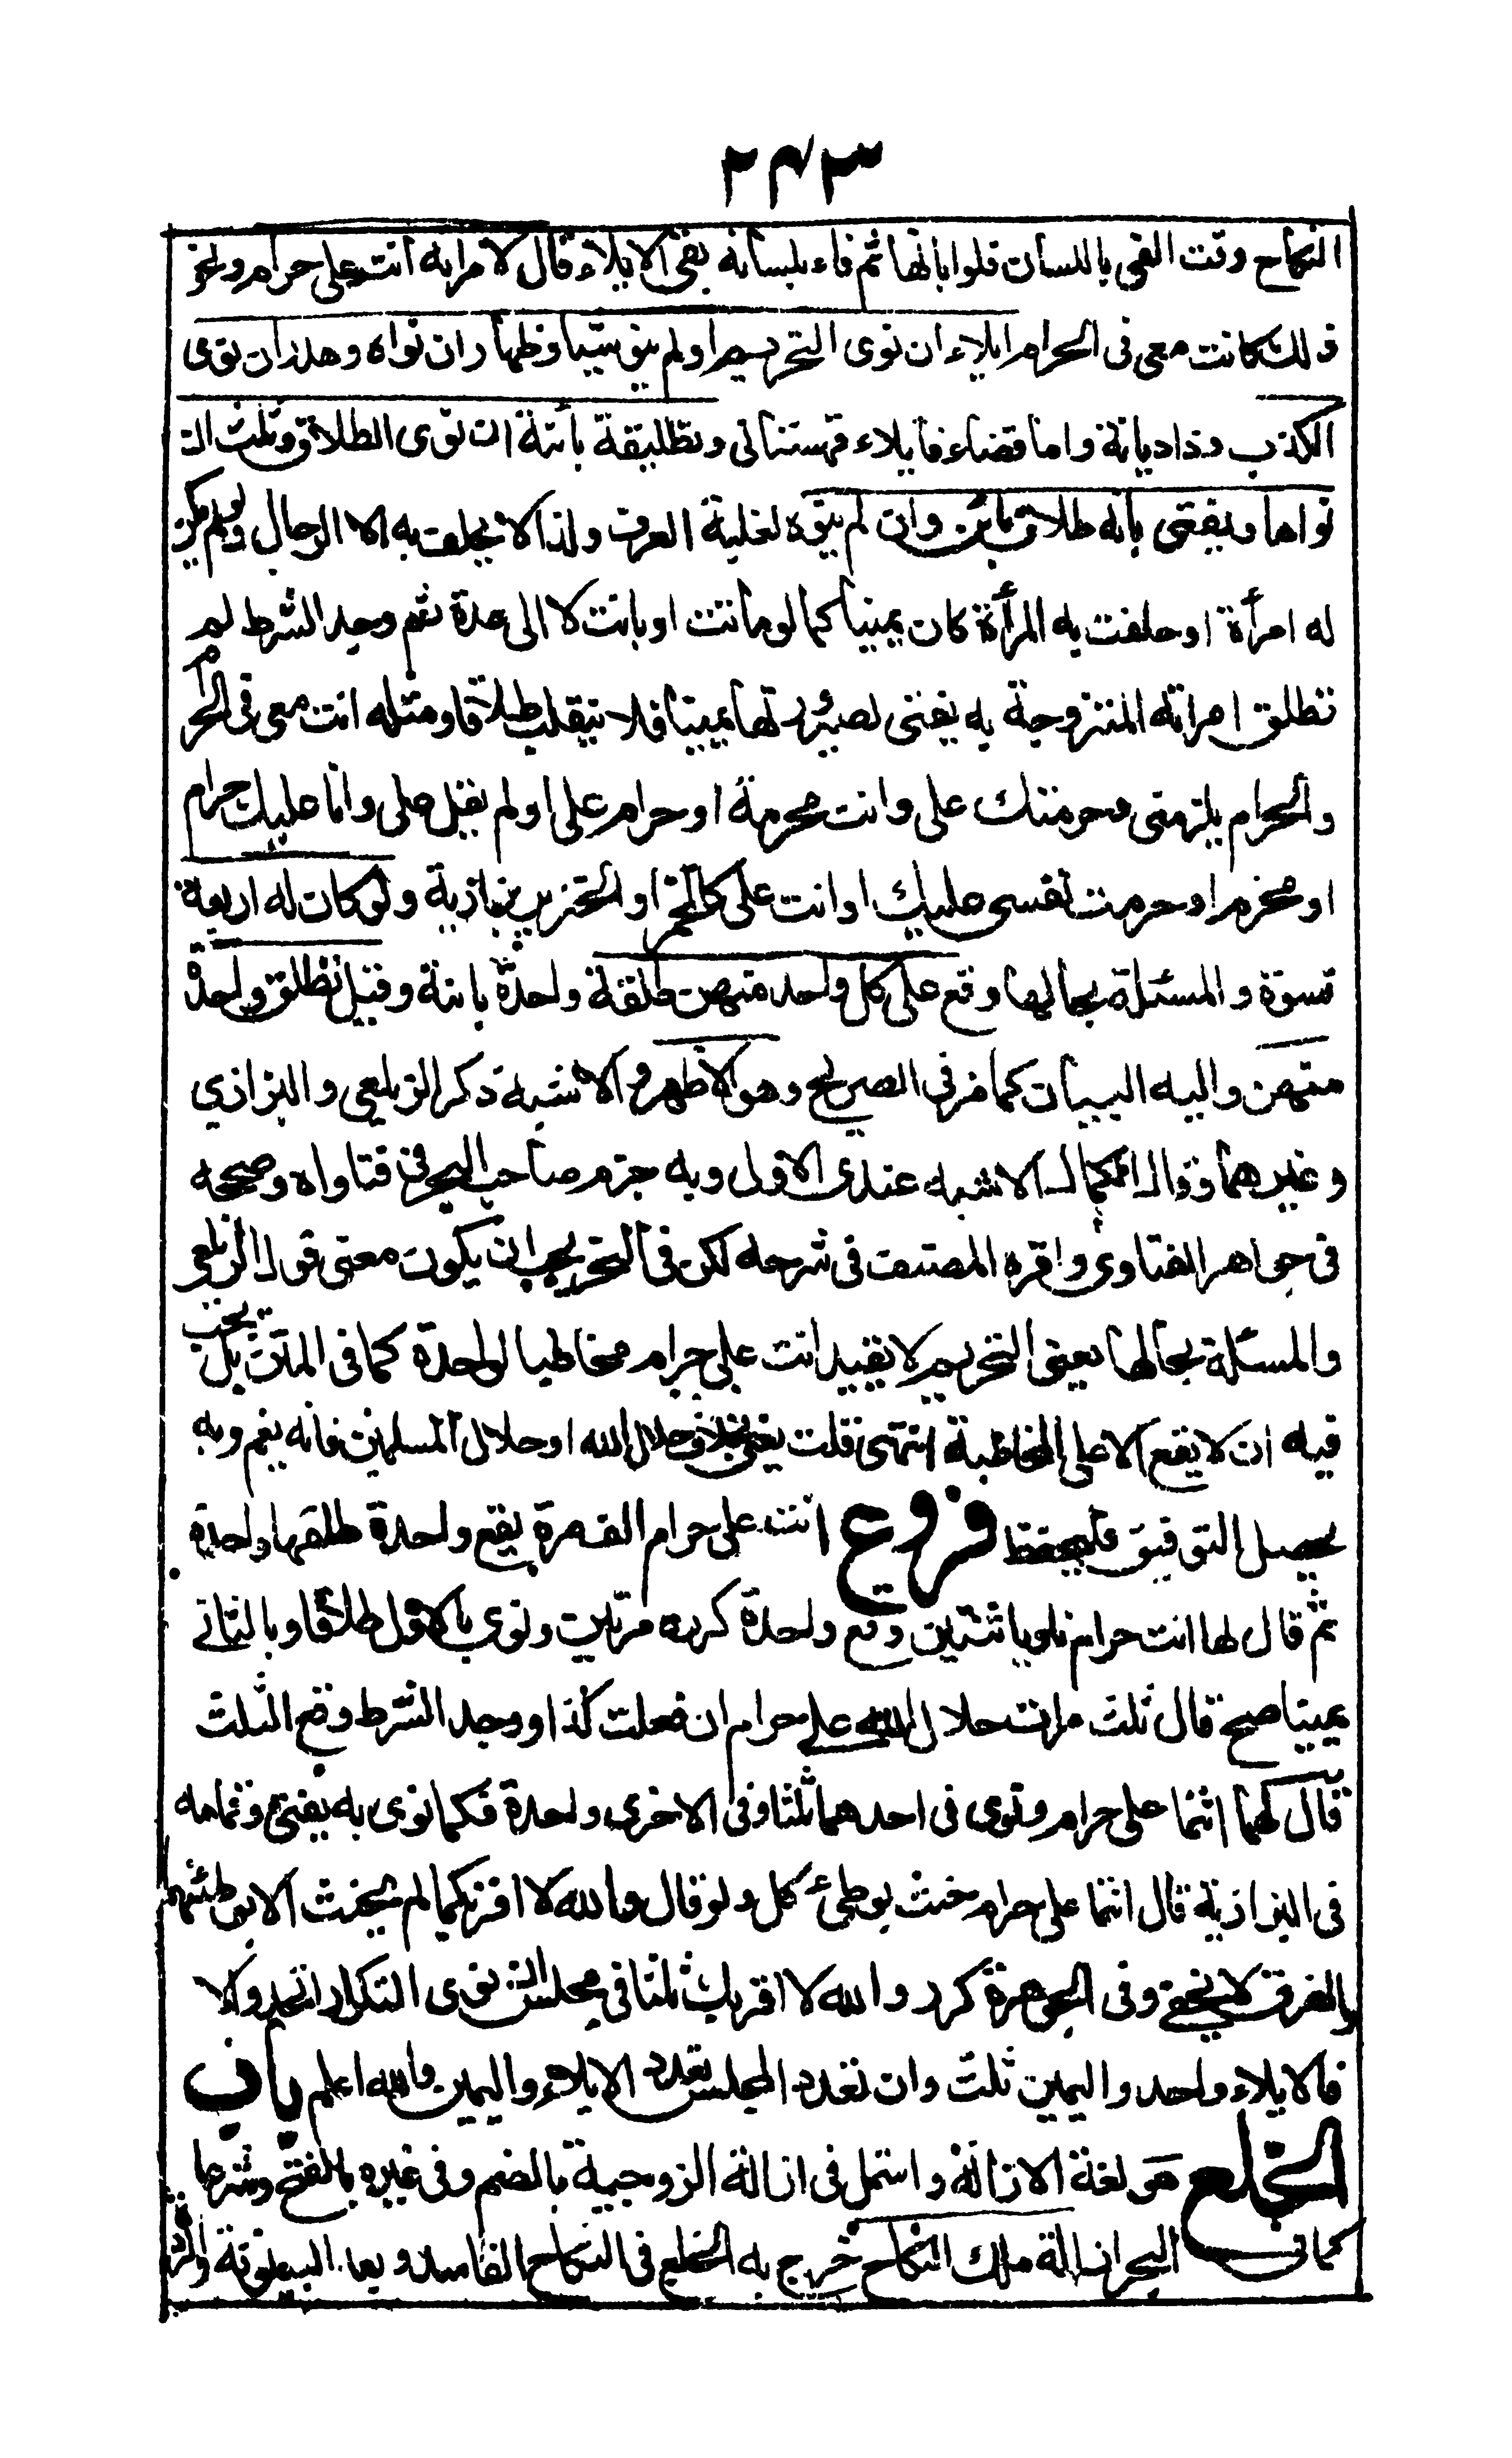 ٢٤٣
النكاح وقت الفئ باللسان فلو ابانها ثم فاء بلسانه بقى الايلاء قال لامراته انت على حرام ونحو
ذلك كانت معى فى الحرام ايلاء ان نوى التحريم او لم ينو شيئا وظهار ان نواه وهدر ان نوى
الكذب وذا ديانة واما قضاء فايلاء قهستانى وتطليقة بائنة ان نوى الطلاق وثلث ان
نواها ويفتى بانه طلاق بائن وان لم ينوه لغلبة العرف ولذا لا يحلف به الا الرجال ولو لم يكن
له امرأة او حلفت به المرأة كان يمينا كما لو ماتت او بانت لا الى عدة ثم وجد الشرط لم
تطلق امراته المتزوجة به يفتى لصيرورتها يمينا فلا ينقلب طلاقا ومثله انت معى فى الحرام
والحرام يلزمنى وحرمتك على وانت محرمة او حرام على او لم يقبل على وانا عليك حرام
او محرم او حرمت نفسى عليك او انت على كالخمر او الخنزير بزازية ولو كان له اربعة
نسوة والمسئلة بحالها وقع على كل واحد منهن طلقة واحدة بائنة وقيل تطلق واحدة
منهن واليه البيان كما مر فى الصريح وهو الاظهر والاشبه ذكر الزيلعى والبزازي
وغيرهما وقال الكمال الاشبه عندى الاول وبه جزم صاحب البحر فى فتاواه وصححه
فى جواهر الفتاوى واقره المصنف فى شرحه لكن فى النهر يجب ان يكون معنى قول الزيلعى
والمسئلة بحالها يعنى التحريم لا بقيد انت على حرام مخاطبا لواحدة كما فى المتن بل يجب
فيه ان لا يقع الا على المخاطبة انتهى قلت يعنى بخلاف حلال الله او حلال المسلمين فانه يعم وبه
يحصل التوفيق فليحفظ فروع انت على حرام الف مرة يقع واحدة طلقها واحدة
ثم قال لها انت حرام ناويا ثنتين وقع واحدة كرره مرتين ونوى بالاول طلاقا وبالثانى
يمينا صح قال ثلث مرات حلال الله على حرام ان فعلت كذا ووجد الشرط وقع الثلث
قال لهما انتما على حرام ونوى فى احدهما ثلثا وفى الاخرى واحدة فكما نوى به يفتى وتمامه
فى البزازية قال انتما على حرام حنث بوطئ كل ولو قال والله لا اقربكما لم يحنث الا بوطئهما
والفرق لا يخفى وفى الجوهرة كرر والله لا اقربك ثلثا فى مجلس ان نوى التكرار اتحد والا
فالايلاء واحد واليمين ثلث وان تعدد المجلس تعدد الايلاء واليمين والله اعلم باب
الخلع هو لغة الازالة واستعمل فى ازالة الزوجية بالضم وفى غيره بالفتح وشرعا
كما فى البحر ازالة ملك النكاح خرج به الخلع فى النكاح الفاسد وبعد البينونة والردة